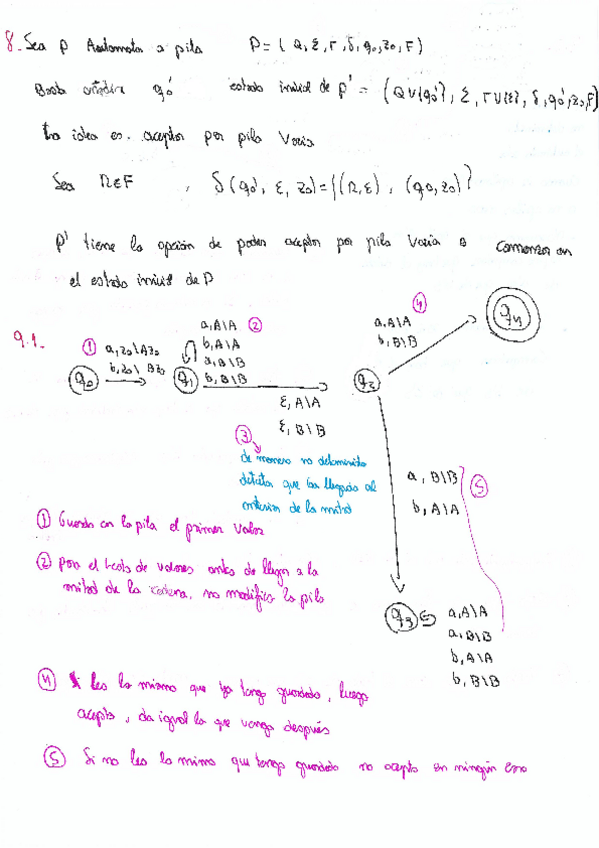 8. Sea P Automata a pila P = ( Q, Σ, Γ, δ, q0, z0, F )
Basta añadir q0' estado inicial de P' = (Q∪{q0'}, Σ, Γ∪{Σ}, δ, q0', z0, F)
La idea es. aceptar por pila Vacia
Sea R∈F , δ(q0', ε, z0) = {(R, ε) , (q0, z0)}
P' tiene la opción de poder aceptar por pila Vacia o comenzar en
el estado inicial de P
9.1.
① a, z0\Az0
b, z0\ Bz0
a, A\A ②
b, A\A
a, B\B
b, B\B
④
a, A\A
b, B\B
q0
q1
q2
q4
ε, A\A
ε, B\B
③
de manera no determinista
detecta que ha llegado al
de la mitad
a, B\B
b, A\A
⑤
① Guarda en la pila el primer valor
② para el resto de valores antes de llegar a la
mitad de la cadena, no modifica la pila
q3
a, A\A
a, B\B
b, A\A
b, B\B
④ Leo lo mismo que ya tengo guardado, luego
acepto, da igual lo que venga después
⑤ Si no leo lo mismo que tengo guardado no acepto en ningún caso